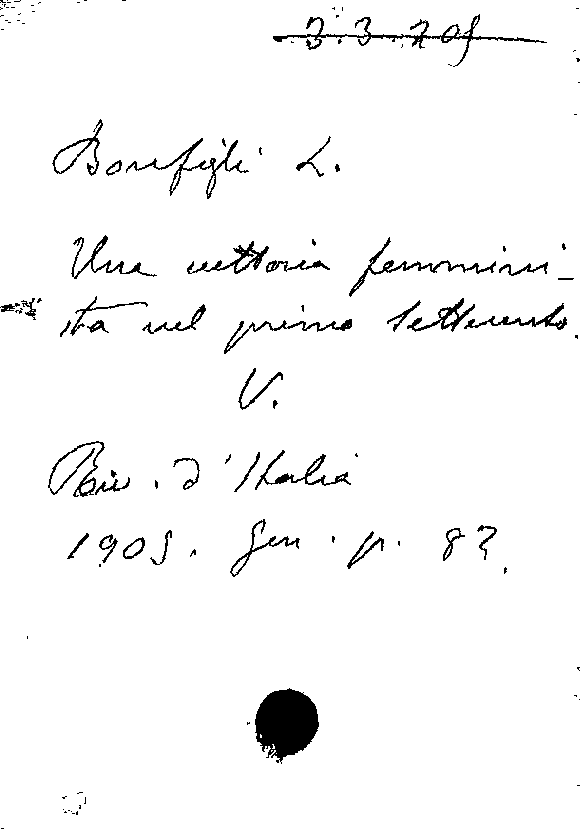 3.3.205
Bonfigli L.
Una vettoria femmini-
sta nel primo Settecento.
V.
Riv. d'Italia
1905. Gen. p. 82.